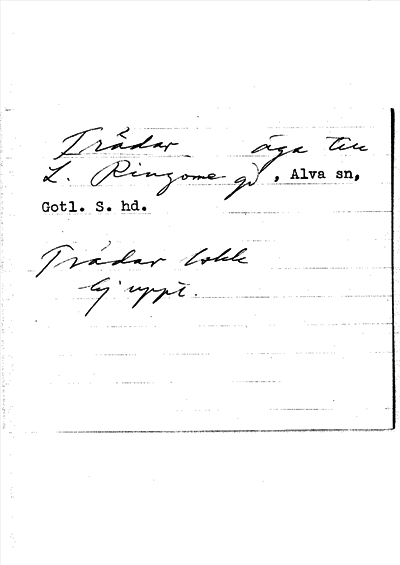 Trådar äga till
L. Ringome gd, Alva sn,
Gotl. S. hd.
Trådar
Ej uppt.